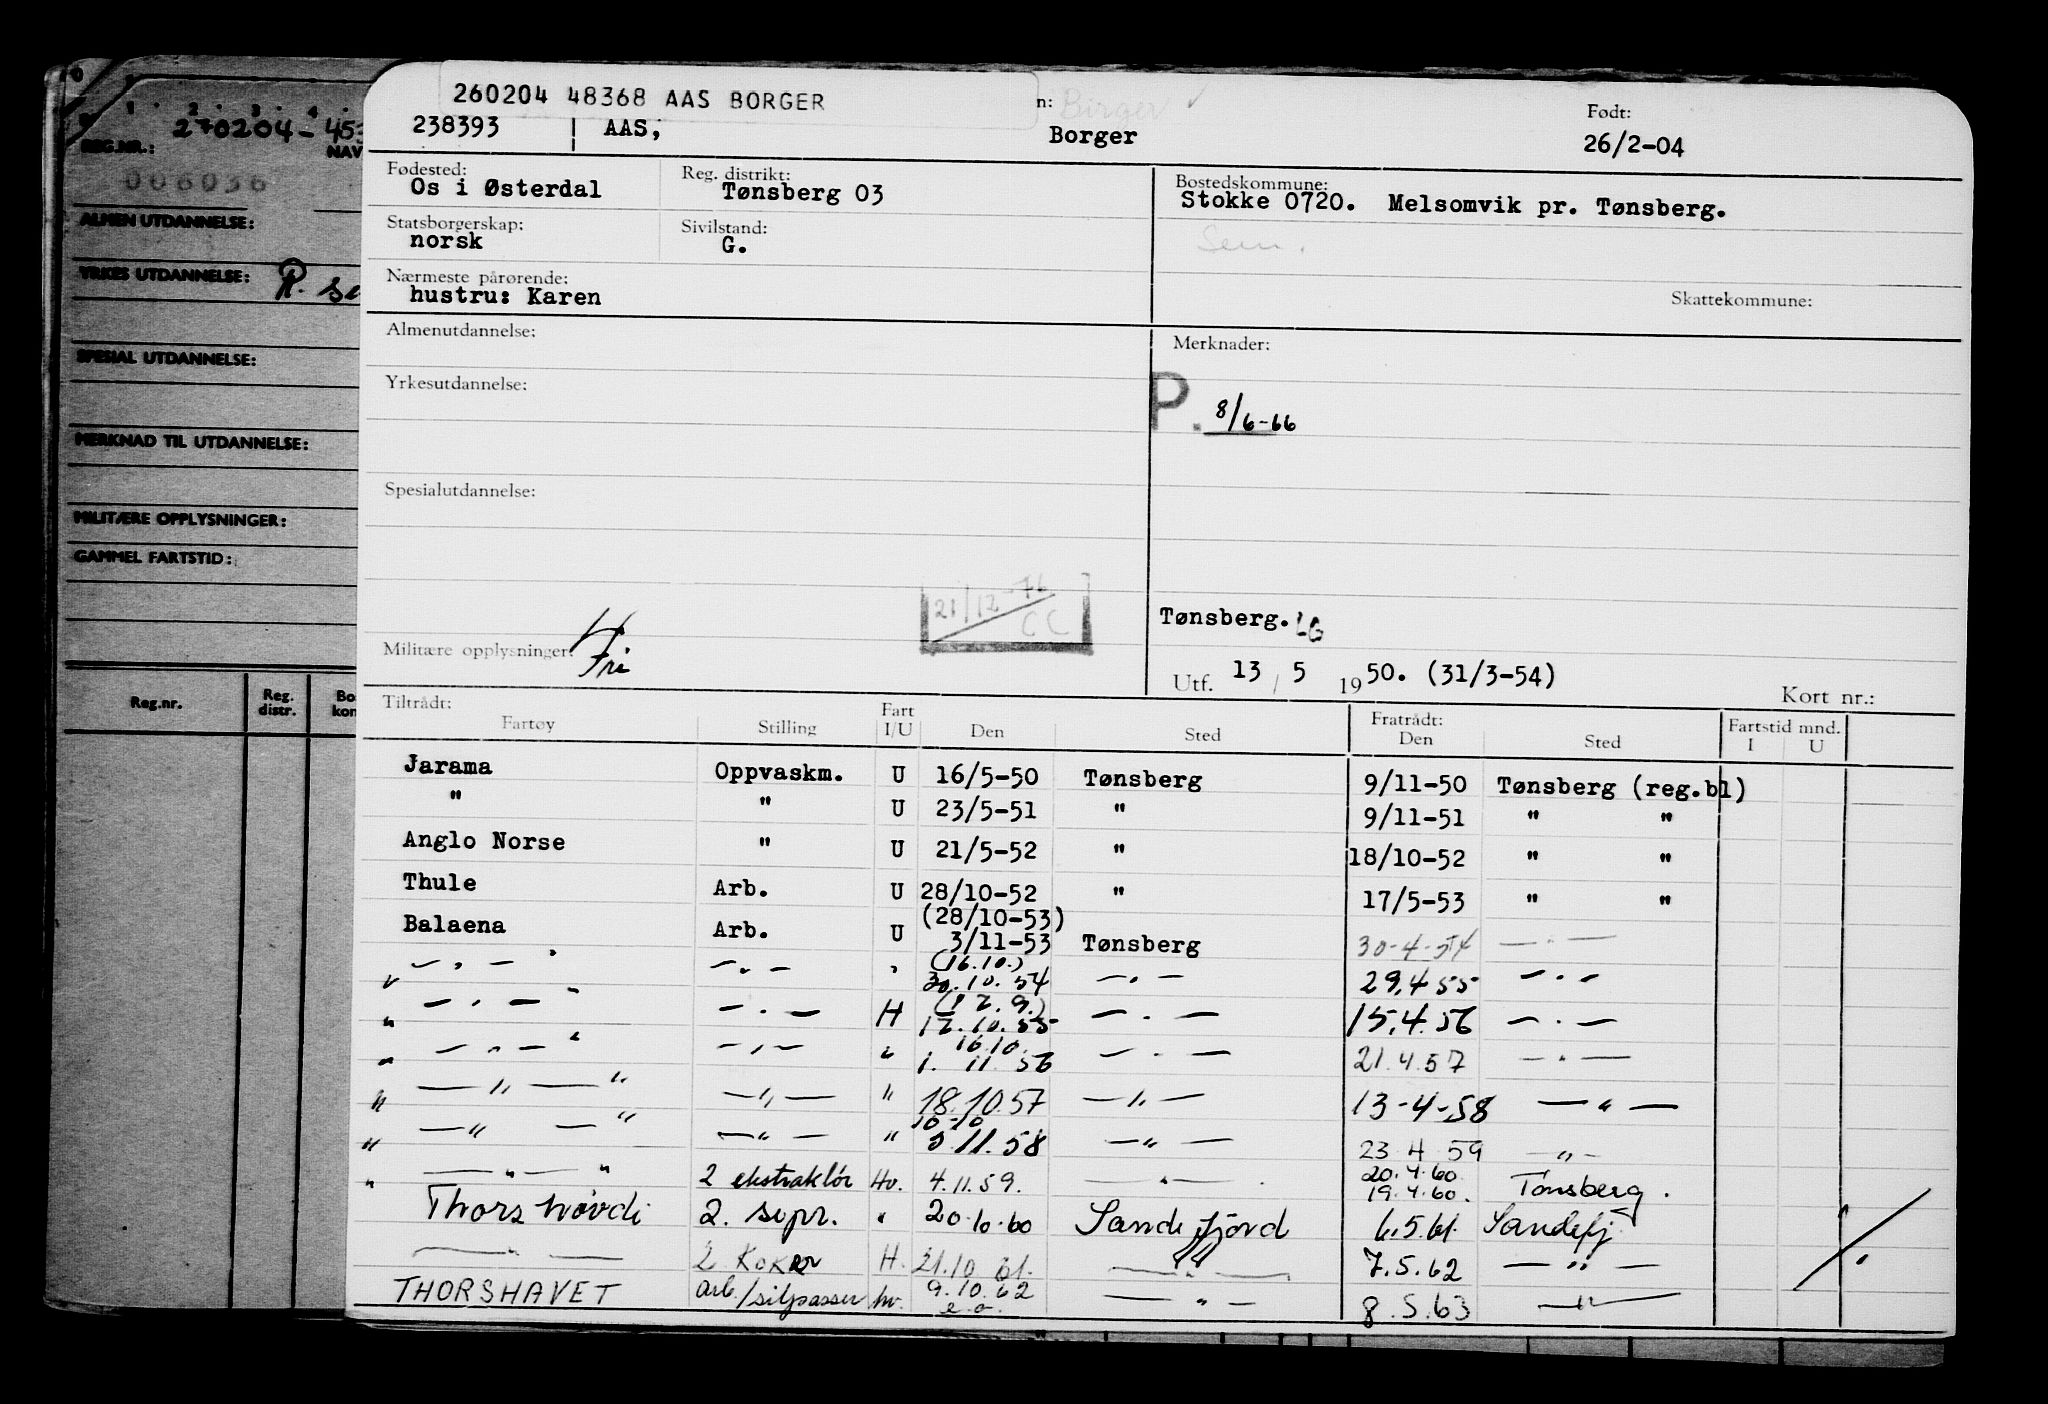 260204 48368 AAS BORGER
n: Birger
Født:
238393 AAS, Borger 26/2-04
Fødested: Os i Østerdal
Reg. distrikt: Tønsberg 03
Bostedskommune:
Stokke 0720. Melsomvik pr. Tønsberg.
Sem.
Statsborgerskap: norsk
Sivilstand: G.
Nærmeste pårørende:
hustru: Karen
Skattekommune:
Almenutdannelse:
Merknader:
Yrkesutdannelse:
P. 8/6-66
Spesialutdannelse:
21/12-76
CC
Tønsberg. LG
Militære opplysninger: Fri
Utf. 13 / 5 1950. (31/3-54)
Kort nr.:
Tiltrådt: Fratrådt: Fartstid mnd.
Fartøy Stilling Fart I/U Den Sted Den Sted I U
Jarama Oppvaskm. U 16/5-50 Tønsberg 9/11-50 Tønsberg (reg.bl)
" " U 23/5-51 " 9/11-51 " "
Anglo Norse " U 21/5-52 " 18/10-52 " "
Thule Arb. U 28/10-52 " 17/5-53 " "
(28/10-53)
Balaena Arb. U 3/11-53 Tønsberg 30-4-54 — " —
(16.10.)
" — " — — " — " 30.10.54 — " — 29.4.55 — " —
(17.9.)
" — " — — " — H 17.10.55 — " — 15.4.56 — " —
16.10.
" — " — — " — " 1.11.56 — " — 21.4.57 — " —
" — " — — " — " 18.10.57 — " — 13-4-58 — " —
10-10
" — " — — " — " 3.11.58 — " — 23 4 59 — " —
20.4.60
" — " — 2 ekstraktør Hv. 4.11.59. — " — 19.4.60. Tønsberg.
Thorshøvdi 2. sepr. " 20.10.60 Sandefjord 6.5.61. Sandefj.
— " — 2 Koker H. 21.10 61. — " — 7.5.62 — " —
THORSHAVET arb./silpasser hv. 9.10.62 — " — 8.5.63 — " —
e.o.
1 2 3 4
270204-453
REG.NR.: NAV
006036
ALMEN UTDANNELSE:
YRKES UTDANNELSE: R. se
SPESIAL UTDANNELSE:
MERKNAD TIL UTDANNELSE:
MILITÆRE OPPLYSNINGER:
GAMMEL FARTSTID:
Reg.nr. Reg. distr. Bo kom